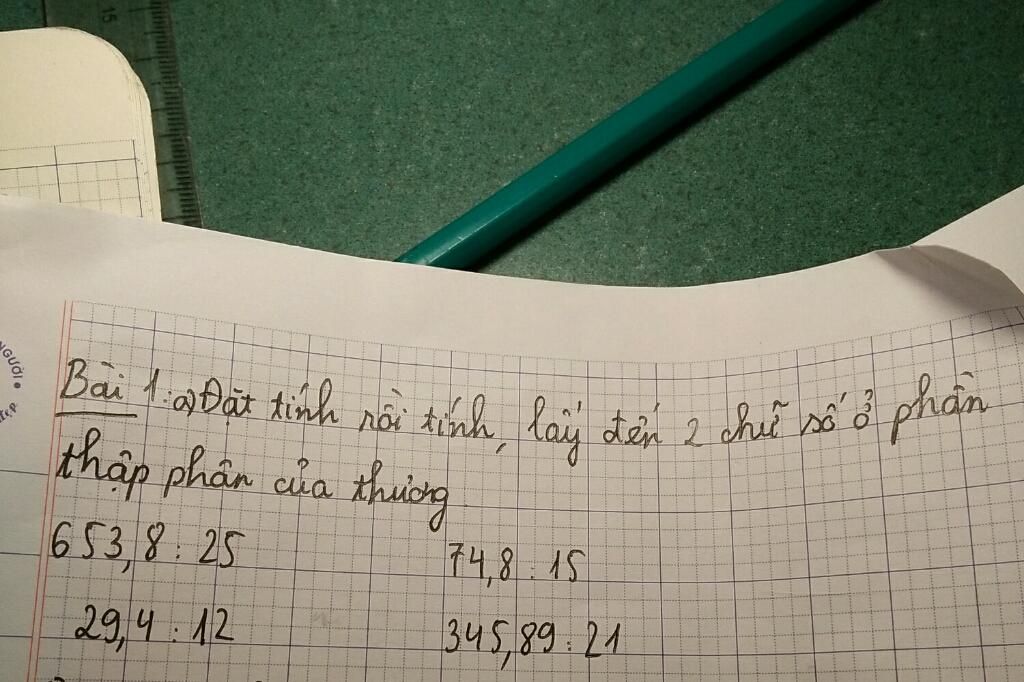 15
NGƯỜI
Bài 1: a) Đặt tính rồi tính, lấy đến 2 chữ số ở phần
thập phân của thương
653,8 : 25 74,8 : 15
29,4 : 12 345,89 : 21